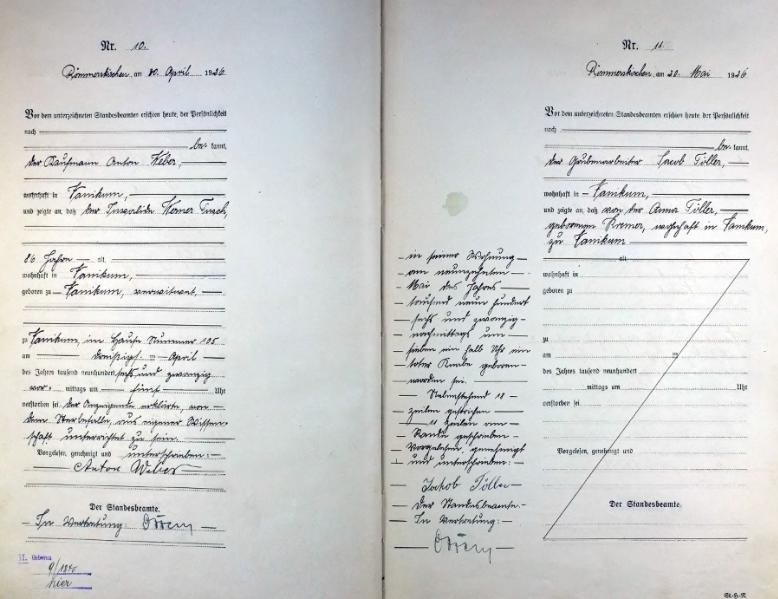 Nr. 10.
Rommerskirchen am 30. April 1926
Vor dem unterzeichneten Standesbeamten erschien heute, der Persönlichkeit
nach
be= kannt,
der Kaufmann Anton Weber,
wohnhaft in Vanikum,
und zeigte an, daß der Invalide Werner
86 Jahre alt,
wohnhaft in Vanikum,
geboren zu Vanikum, verwitwet,
zu Vanikum, im Hause Nummer 105
am dreißigsten April
des Jahres tausend neunhundert sechs und zwanzig
vor= mittags um fünf Uhr
verstorben sei. Der Anzeigende erklärte, von
dem Sterbefalle aus eigener Wissen=
schaft unterrichtet zu sein.
Vorgelesen, genehmigt und unterschrieben:
Anton Weber
Der Standesbeamte.
In Vertretung:
hier
Nr. 11.
Rommerskirchen am 20. Mai 1926
Vor dem unterzeichneten Standesbeamten erschien heute, der Persönlichkeit
nach
be= kannt,
der Grubenarbeiter Jacob Töller,
wohnhaft in Vanikum,
und zeigte an, daß von der Anna Töller,
geborenen Kremer, wohnhaft in Vanikum,
zu Vanikum
alt
wohnhaft in
geboren zu
zu
am
des Jahres tausend neunhundert
mittags um Uhr
verstorben sei.
Vorgelesen, genehmigt und
Der Standesbeamte.
in seiner Wohnung
am neunzehnten
Mai des Jahres
tausend neun hundert
sechs und zwanzig
nachmittags um
sieben ein halb Uhr ein
toter Knabe geboren
worden sei.
Nebenstehend 18
Zeilen gestrichen
11 Zeilen am
Rande geschrieben
Vorgelesen, genehmigt
und unterschrieben:
Jakob Töller
Der Standesbeamte.
In Vertretung:
St.-H.-R.